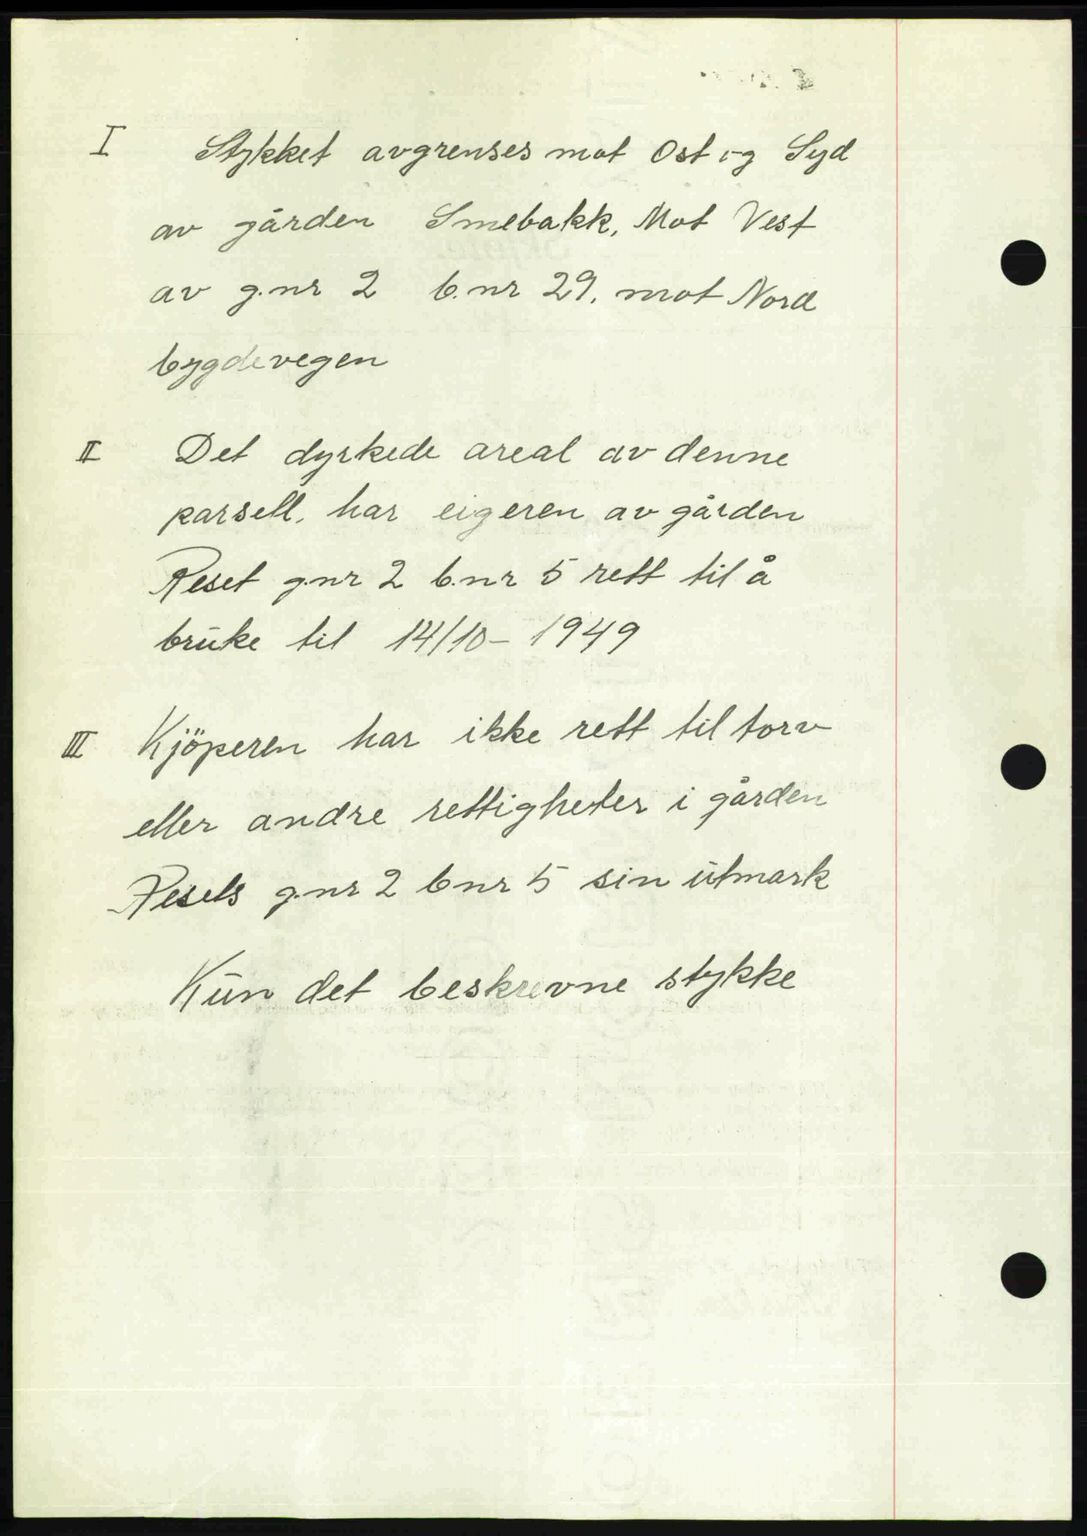 I Stykket avgrenses mot Ost og Syd
av gården Smebakk, Mot Vest
av g.nr 2 b.nr 29, mot Nord
bygdevegen
II Det dyrkede areal av denne
parsell, har eigeren av gården
Reset g.nr 2 b.nr 5 rett til å
bruke til 14/10- 1949
III Kjöperen har ikke rett til torv
eller andre rettigheter i gården
Resets g.nr 2 b.nr 5 sin utmark
Kun det beskrevne stykke